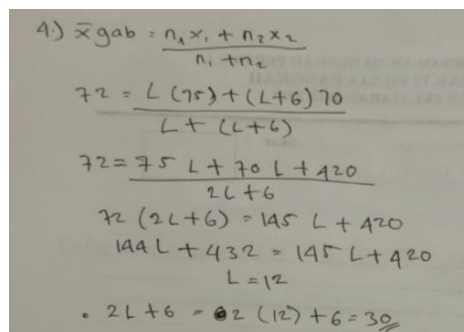 4.) x̄ gab = n₁x₁ + n₂x₂
n₁ + n₂
72 = L (75) + (L+6) 70
L + (L+6)
72 = 75 L + 70 L + 420
2L + 6
72 (2L+6) = 145 L + 420
144 L + 432 = 145 L + 420
L = 12
. 2L + 6 = 2 (12) + 6 = 30